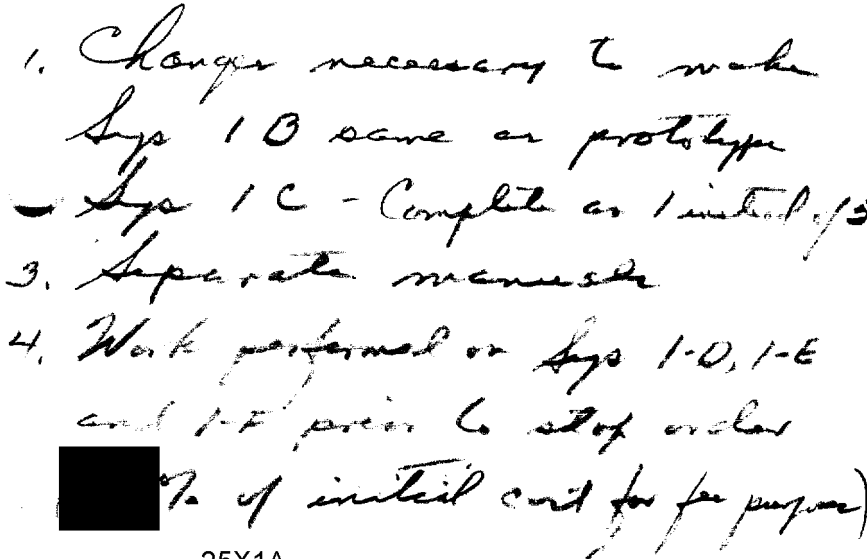 1. Changes necessary to make
Sys 1B same as prototype
Sys 1C - Complete as 1 instead of 3
3. Separate manuals
4. Work performed on Sys 1-D, 1-E
and 1-F prior to stop order
% of initial cost for fee purposes)
25X1A